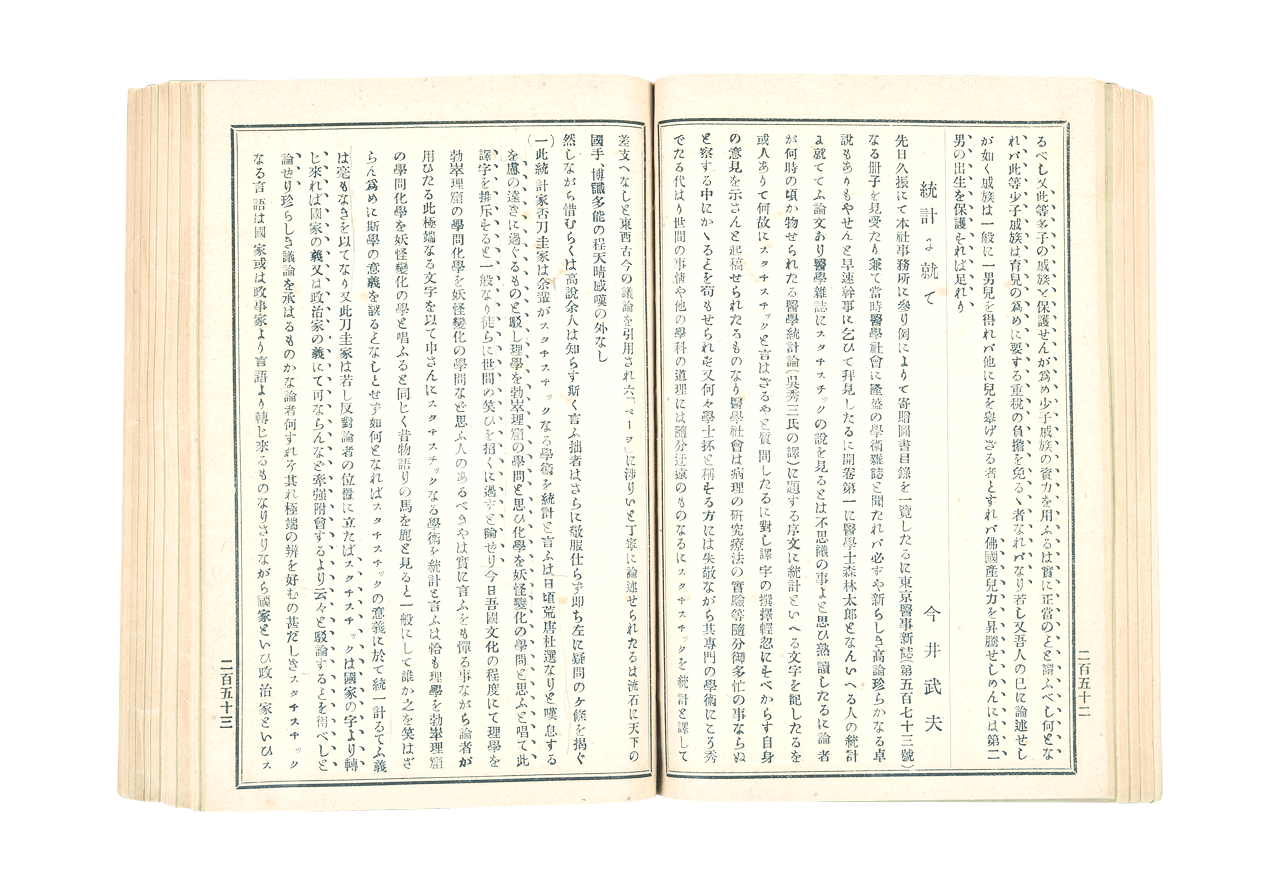 るべし又此等多子の戚族を保護せんが爲め少子戚族の資力を用ふるは實に正當のことと謂ふべし何とな
れバ此等少子戚族は育兒の爲めに要する重税の負擔を免るゝ者なれバなり若し又吾人の已に論述せし
が如く戚族は一般に一男兒を得れバ他に兒を擧げざる者とすれバ佛國產兒力を昇騰せしめんには第二
男の出生を保護すれば足れり
統計に就て
今井武夫
先日久振にて本社事務所に參り例によりて寄贈圖書目錄を一覽したるに東京醫事新誌(第五百七十三號)
なる册子を見受たり兼て當時醫學社會に隆盛の學術雜誌と聞たれバ必すや新らしき高論珍らかなる卓
說もありもやせんと早速幹事に乞ひて拜見したるに開卷第一に醫學士森林太郎となんいへる人の統計
に就ててふ論文あり醫學雜誌にスタチスチックの說を見るとは不思議の事よと思ひ熟讀したるに論者
が何時の頃か物せられたる醫學統計論(吳秀三氏の譯)に題する序文に統計といへる文字を記したるを
或人ありて何故にスタチスチックと言はざるやと質問したるに對し譯字の撰擇輕忽にすべからす自身
の意見を示さんと起稿せられたるものなり醫學社會は病理の硏究療法の實驗等隨分御多忙の事ならぬ
と察する中にかゝることを苟もせられず又何々學士抔と稱する方には失敬ながら其專門の學術にころ秀
でたる代はり世間の事情や他の學科の道理には隨分迂遠のものなるにスタチスチックを統計と譯して
二百五十二
差支へなしと東西古今の議論を引用され六「ページ」に涉りいと丁寧に論述せられたるは流石に天下の
國手、博識多能の程天晴感嘆の外なし
然しながら惜むらくは高說余人は知らず斯く言ふ拙者はさらに敬服仕らず即ち左に疑問のケ條を揭ぐ
(一)此統計家否刀圭家は余輩がスタチスチックなる學術を統計と言ふは日頃荒唐杜選なりと嘆息する
を慮の遠きに過ぐるものと駁し理學を勃崒理窟の學問と思ひ化學を妖怪變化の學問と思ふと唱て此
譯字を排斥すると一般なり徒らに世間の笑ひを招くに過すと論せり今日吾國文化の程度にて理學を
勃崒理窟の學問化學を妖怪變化の學問など思ふ人のあるべきやは實に言ふをも憚る事ながら論者が
用ひたる此極端なる文字を以て申さんにスタチスチックなる學術を統計と言ふは恰も理學を勃崒理窟
の學問化學を妖怪變化の學と唱ふると同じく昔物語りの馬を鹿と見ると一般にして誰か之を笑はざ
らん爲めに斯學の意義を誤るとなしとせず如何となればスタチスチックの意義に於て統一計るてふ義
は毫もなきを以てなり又此刀圭家は若し反對論者の位置に立たばスタチスチックは國家の字より轉
じ來れば國家の義又は政治家の義にて可ならんなど牽强附會するより云々と駁論することを得べしと
論せり珍らしき議論を承はるものかな論者何すれぞ其れ極端の辨を好むの甚だしきスタチスチック
なる言語は國家或は政事家より言語より轉じ來るものなりさりながら國家といひ政治家といひス
二百五十三